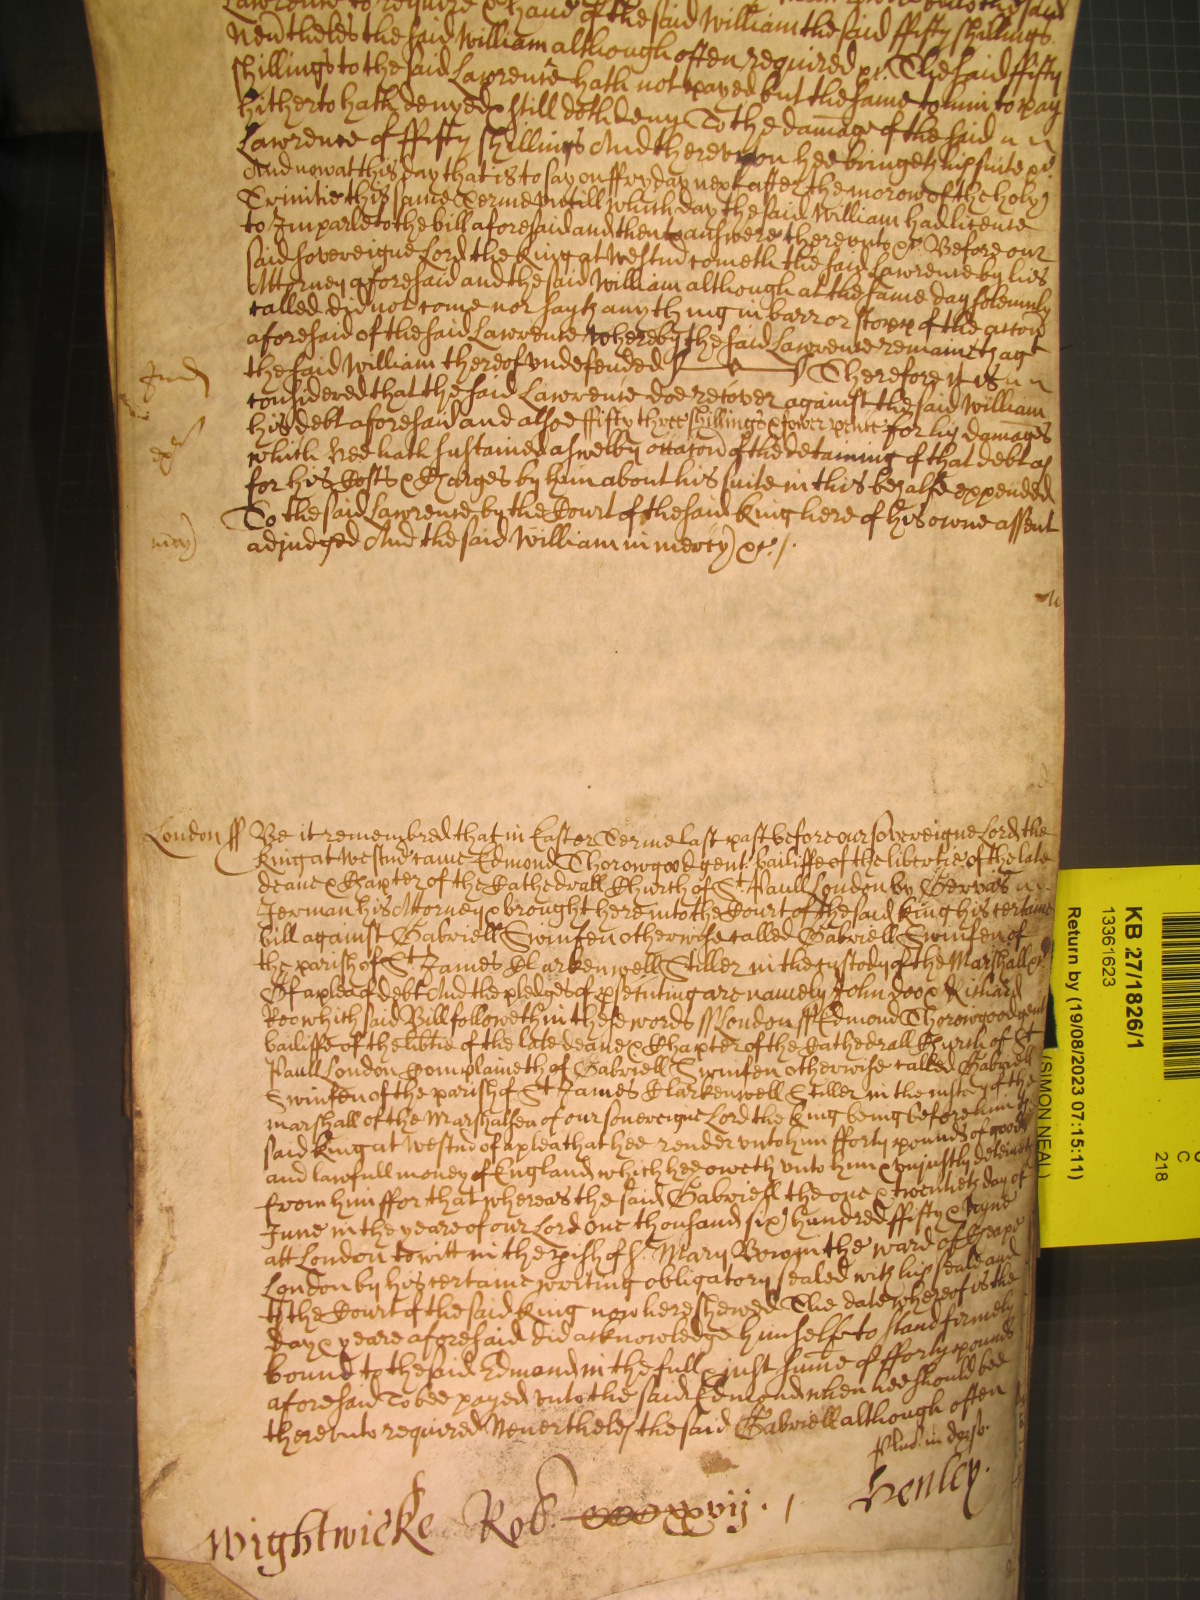 Lawrence to require & hand of the said William the said ffifty shillings
Neuertheles the said William although often required &c. The said ffifty
shillings to the said Lawrence hath not payed but the same to him to pay
hitherto hath denyed & still doth deny To the damage of the said
Lawrence of ffifty shillings And therevpon hee bringeth his suite &c.
And now at this day that is to say on ffryday next after the morow of the holy
Trinitie this same Terme vntill which day the said William had licence
to Imparle to the bill aforesaid and then to answere therevnto &c. Before our
said sovereigne Lord the King at Westm cometh the said Lawrence by his
Attorney aforesaid and the said William although at the same day solemnly
called did not come nor sayth any thing in barr or stopp of the accon
aforesaid of the said Lawrence whereby the said Lawrence remaineth agt
the said William thereof vndefended Therefore it is
Jud
considered that the said Lawrence doe recover against the said William
his debt aforesaid and alsoe ffifty three shillings & fower pence for his damages
which hee hath sustained aswell by occacon of the detaining of that debt as
for his Costs & Charges by him about his suite in this behalfe expended
To the said Lawrence by the Court of the said King here of his owne assent
mcy
adjudged And the said William in mercy &c.
London ss Be it remembred that in Easter Terme last past before our sovereigne Lord the
King at Westm came Edmond Thorowgood gent. bailiffe of the libertie of the late
deane & Chapter of the Cathedrall Church of St. Paull London by Gervas
Jerman his Attorney & brought here into the Court of the said King his certaine
bill against Gabriell Swinfen otherwise called Gabriell Swinfen of
the parish of St. James Clarkenwell Stiller in the custody of the Marshall &c.
Of a plea of debt And the pledges of psecuting are namely John doo & Richard
Roo which said Bill followeth in these words ss London ss Edmond Thorowgood gent
bailiffe of the libtie of the late deane & Chapter of the Cathedrall Church of St
Paull London Complaineth of Gabriell Swinfen otherwise called Gabriell
Swinfen of the parish of St James Clarkenwell Stiller in the custody of the
marshall of the Marshalsea of our sovereigne Lord the King being before him the
said King at Westm of a plea that hee render vnto him fforty pounds of good
and lawfull money of England which hee oweth vnto him & vnjustly deteineth
from him ffor that whereas the said Gabriell the one & twentieth day of
June in the yeare of our Lord one thousand six hundred ffifty & Nyne
att London to witt in the pish of St. Mary Bow in the ward of Cheape
London by his certaine writing obligatory sealed with his seale and
to the Court of the said King now here shewed The date whereof is the
day & yeare aforesaid did acknowledge himselfe to stand firmely
bound to the said Edmond in the full & just summe of fforty pounds
aforesaid To bee payed vnto the said Edmond when hee should bee
therevnto required Neuertheles the said Gabriell although often
Plus in dorso.
Wightwicke Rob. xvij. Henley.
KB 27/1826/1
13361623
Return by (19/08/2023 07:15:11)
(SIMON NEAL)
C
218